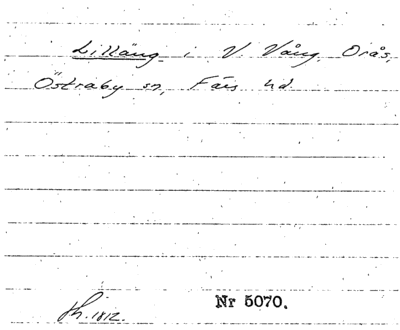 Lilläng i V. Vång, Orås,
Östraby sn, Färs hd.
Sh. 1812.
Nr 5070.